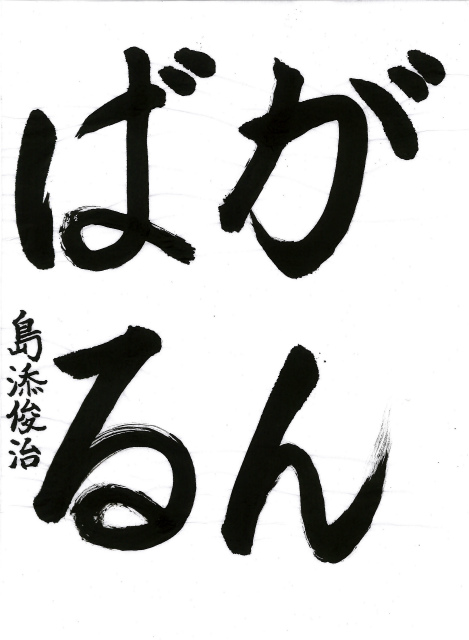 がん
ばる
島添俊治